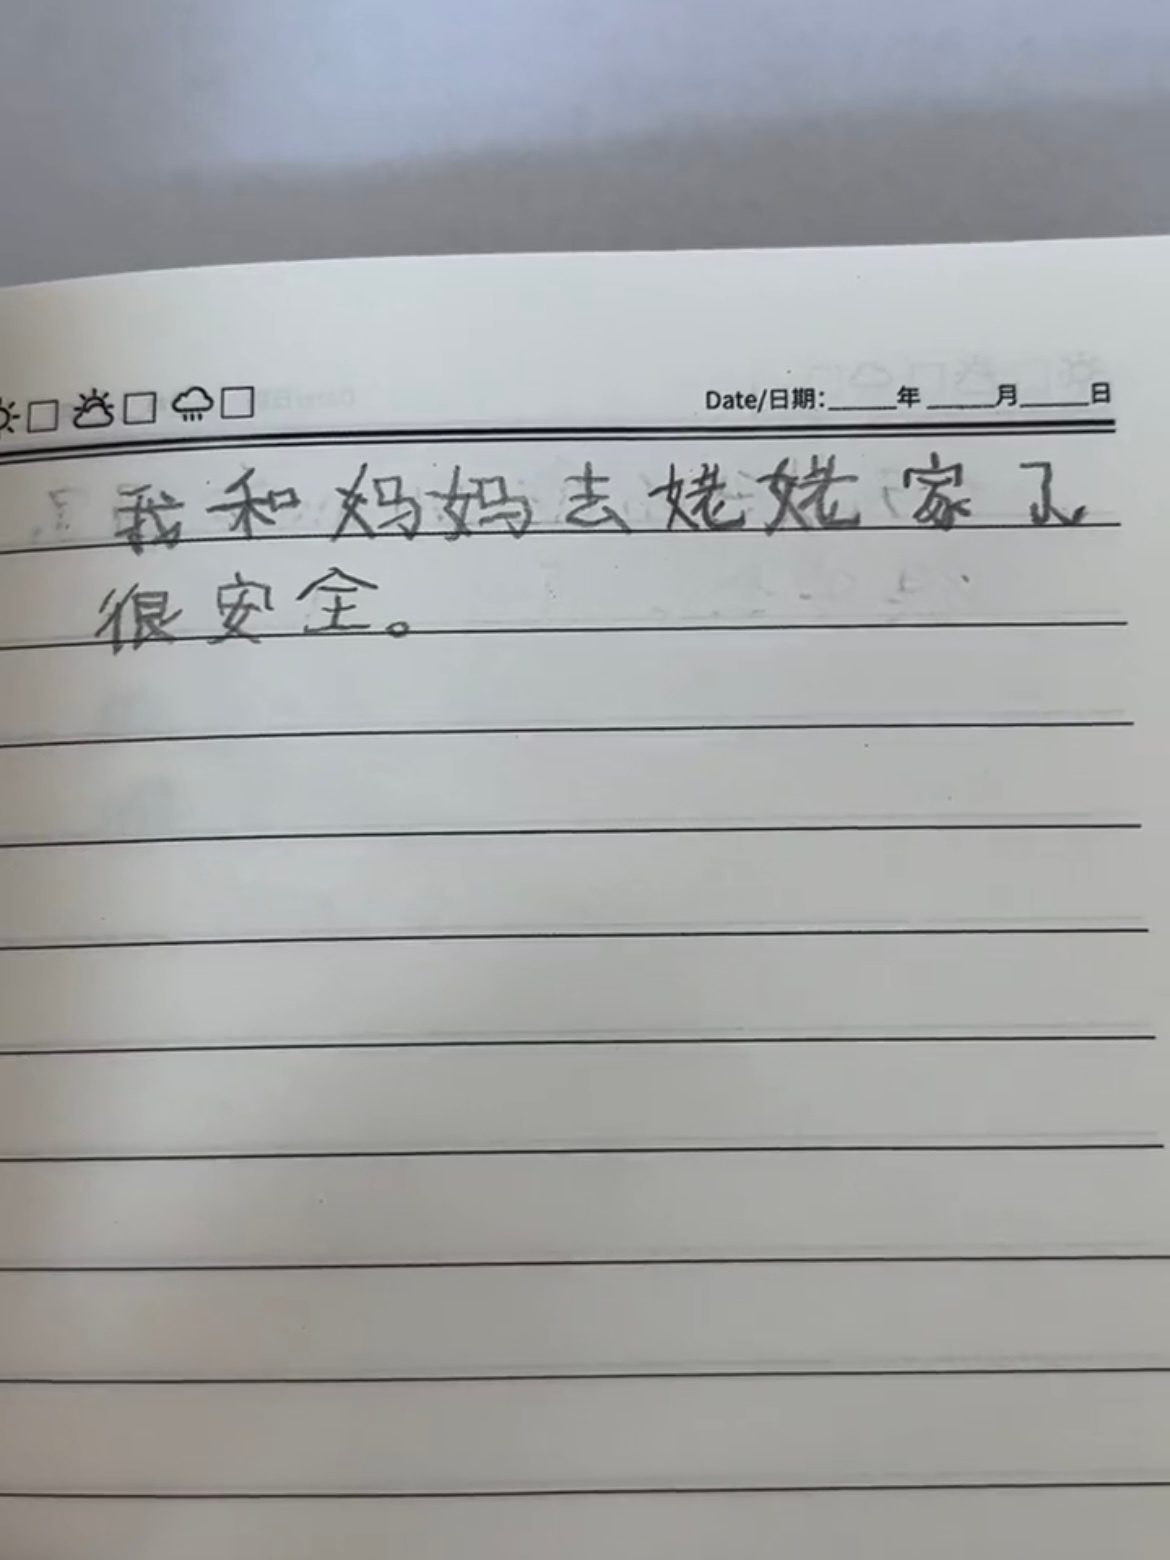 Date/日期：_____年_____月_____日
我和妈妈去姥姥家了
很安全。